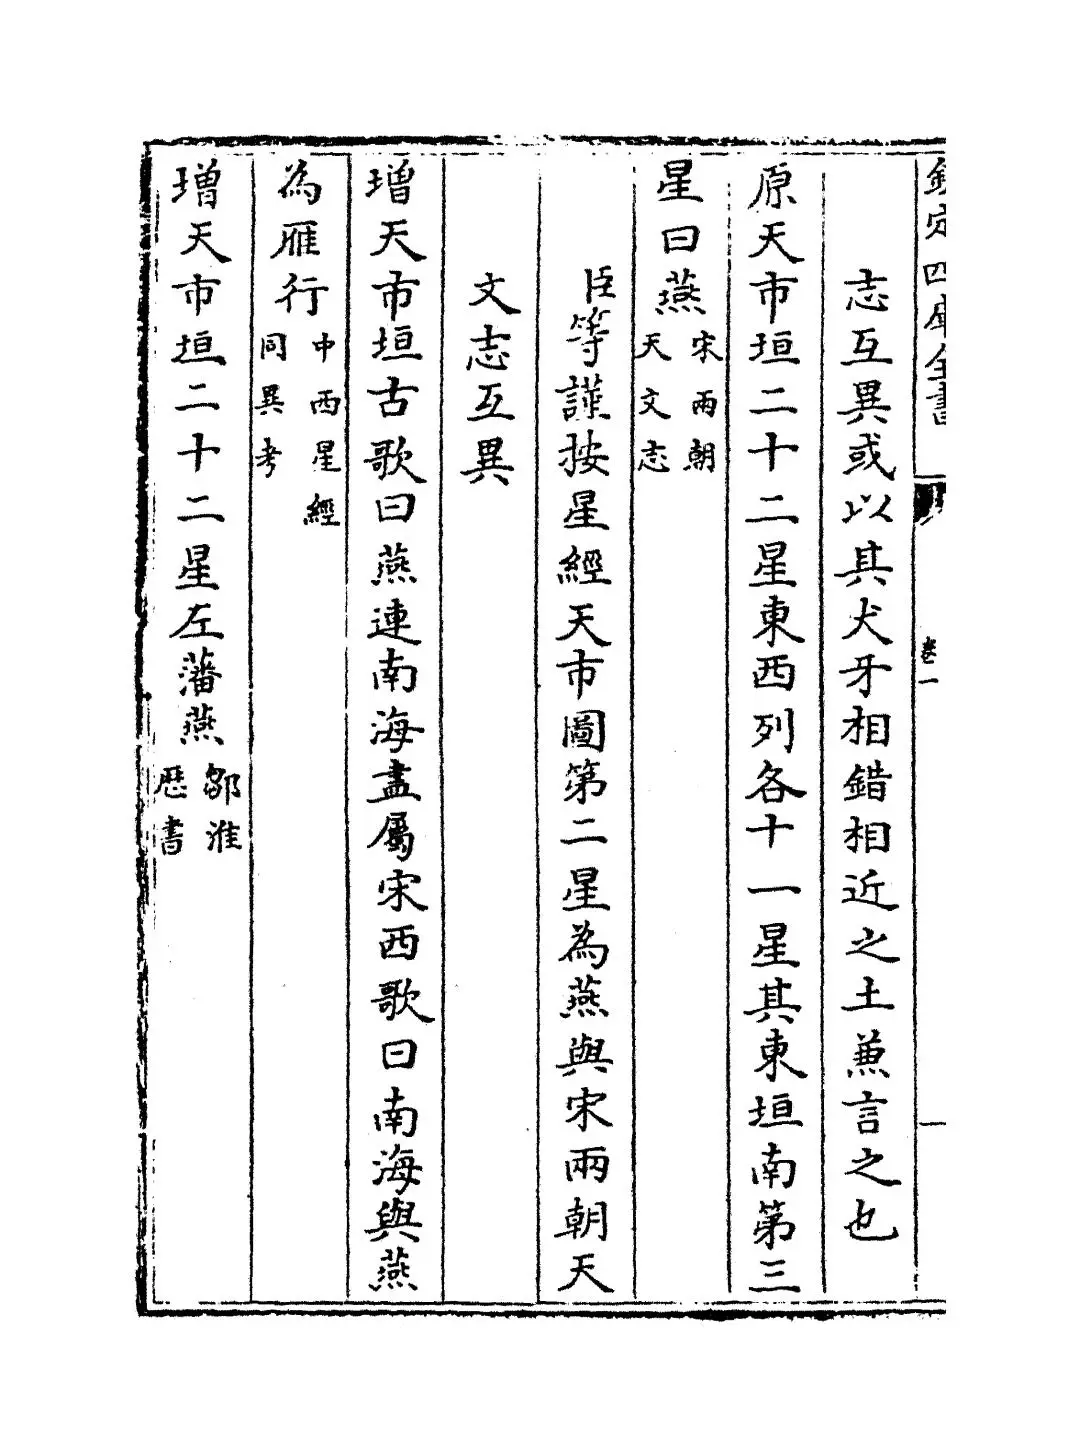 欽定四庫全書
卷一
志互異或以其犬牙相錯相近之土兼言之也
原天市垣二十二星東西列各十一星其東垣南第三
星曰燕宋兩朝天文志
臣等謹按星經天市圖第二星為燕與宋兩朝天
文志互異
增天市垣古歌曰燕連南海盡屬宋西歌曰南海與燕
為雁行中西星經同異考
增天市垣二十二星左藩燕鄒淮厯書